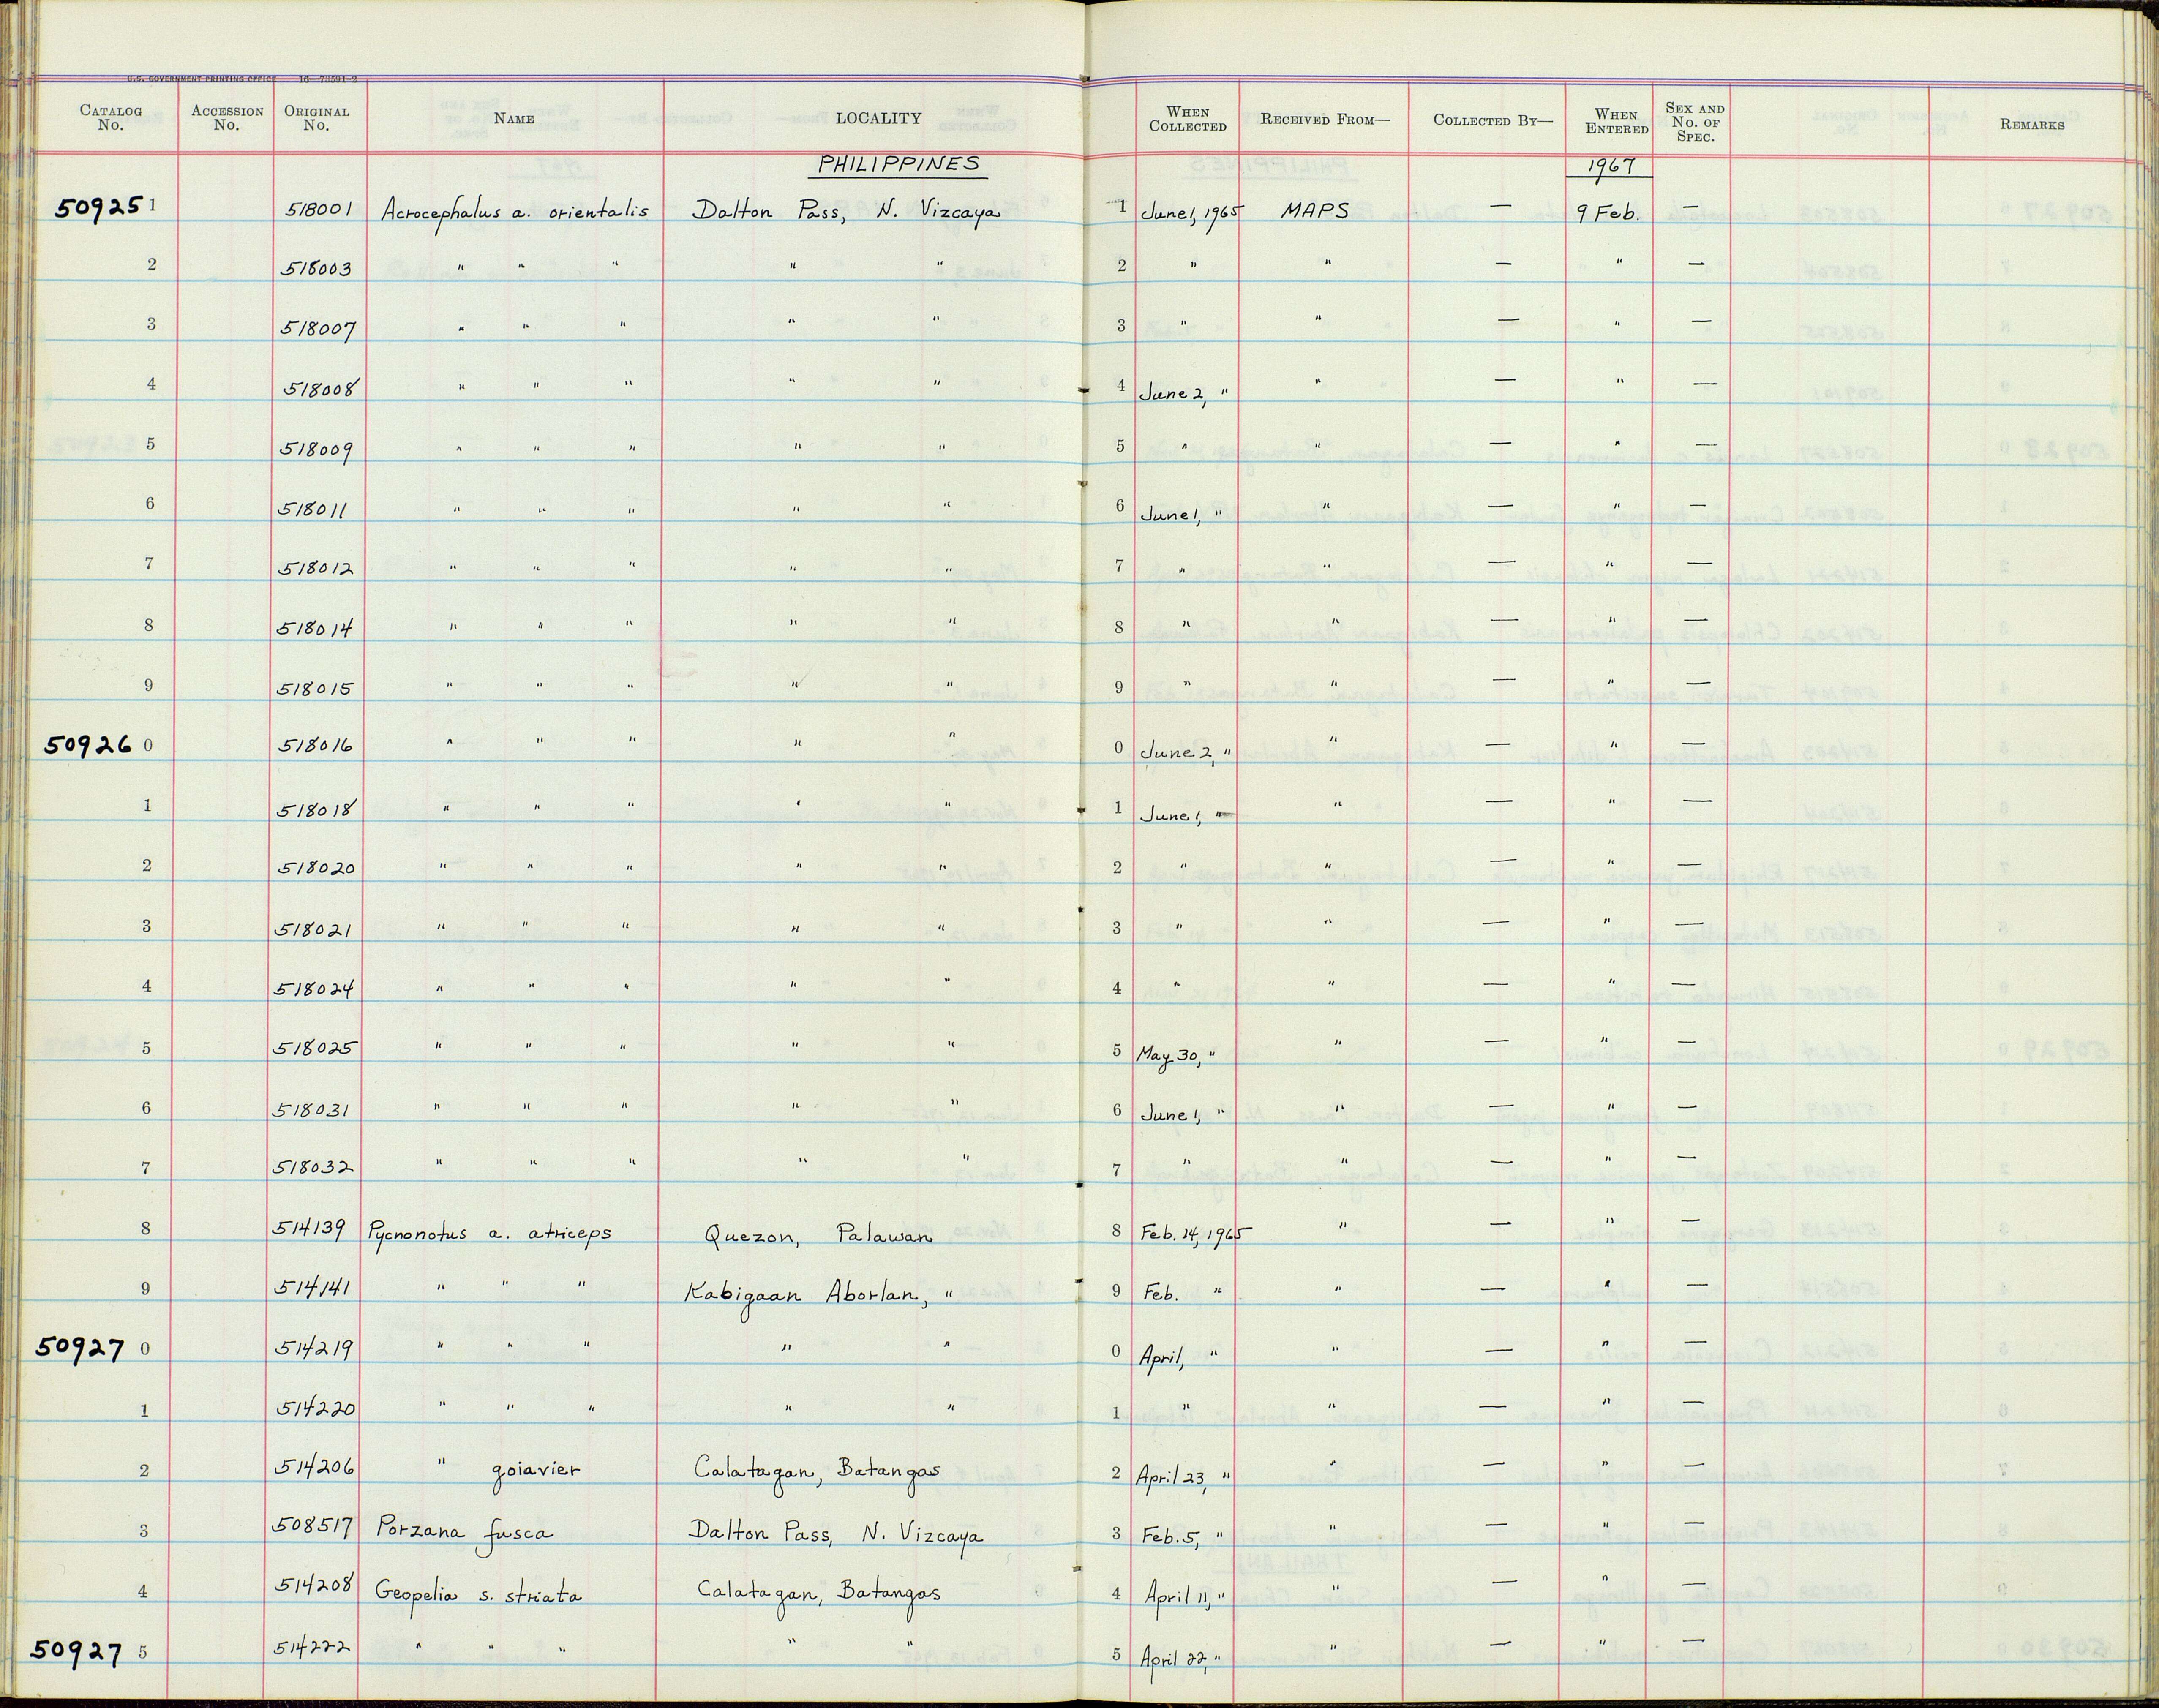 U.S. GOVERNMENT PRINTING OFFICE 16—73591-2
CATALOG No. ACCESSION No. ORIGINAL No. NAME LOCALITY WHEN COLLECTED RECEIVED FROM— COLLECTED BY— WHEN ENTERED SEX AND No. OF SPEC. REMARKS
PHILIPPINES 1967
509251 518001 Acrocephalus a. orientalis Dalton Pass, N. Vizcaya 1 June 1, 1965 MAPS — 9 Feb. —
2 518003 " " " " " 2 " " — " —
3 518007 " " " " " 3 " " — " —
4 518008 " " " " " 4 June 2, " " — " —
5 518009 " " " " " 5 " " — " —
6 518011 " " " " " 6 June 1, " " — " —
7 518012 " " " " " 7 " " — " —
8 518014 " " " " " 8 " " — " —
9 518015 " " " " " 9 " " — " —
509260 518016 " " " " " 0 June 2, " " — " —
1 518018 " " " " " 1 June 1, " " — " —
2 518020 " " " " " 2 " " — " —
3 518021 " " " " " 3 " " — " —
4 518024 " " " " " 4 " " — " —
5 518025 " " " " " 5 May 30, " " — " —
6 518031 " " " " " 6 June 1, " " — " —
7 518032 " " " " " 7 " " — " —
8 514139 Pycnonotus a. atriceps Quezon, Palawan 8 Feb. 14, 1965 " — " —
9 514141 " " " Kabigaan Aborlan, " 9 Feb. " " — " —
509270 514219 " " " " " 0 April, " " — " —
1 514220 " " " " " 1 " " — " —
2 514206 " goiavier Calatagan, Batangas 2 April 23, " " — " —
3 508517 Porzana fusca Dalton Pass, N. Vizcaya 3 Feb. 5, " " — " —
4 514208 Geopelia s. striata Calatagan, Batangas 4 April 11, " " — " —
509275 514222 " " " " " 5 April 22, " " — " —